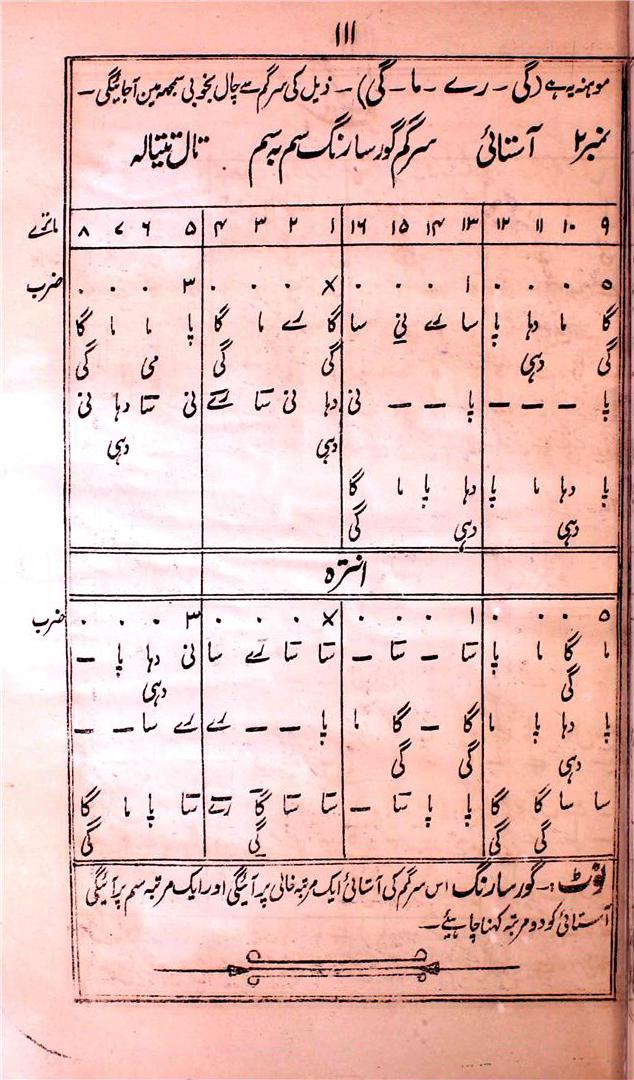 ۱۱۱
موہنہ یہ ہے (گی ۔ رے ۔ ما ۔ گی) ۔ ذیل کی سرگم سے چال بخوبی سمجھہ مین آجائیگی ۔
نمبر ۲ آستائی سرگم گور سارنگ سم بہ سم تال تیتالہ
۹ ۱۰ ۱۱ ۱۲ ۱۳ ۱۴ ۱۵ ۱۶ ۱ ۲ ۳ ۴ ۵ ۶ ۷ ۸ ماترے
۵ ۰ ۰ ۰ ۱ ۰ ۰ ۰ × ۰ ۰ ۰ ۳ ۰ ۰ ۰ ضرب
گا ما دہا پا سا رے نِی سا گا رے ما گا پا ما ما گا
گی دہی گی گی می گی
پا – – – پا – – نی دہا نی سَا رَے نی سَا دہا نی
دہی دہی
پا دہا ما پا دہا پا ما گا
دہی دہی گی
انترہ
۵ ۰ ۰ ۰ ۱ ۰ ۰ ۰ × ۰ ۰ ۰ ۳ ۰ ۰ ۰ ضرب
ما گا ما پا سَا – سَا – سَا سَا رے سا نی دہا پا –
گی دہی
پا دہا پا ما گا – گا ما پا – – رے رے سا – –
دہی گی گی
سا سا گا گا پا پا سَا – سَا سَا گَا رَے سَا پا ما گا
گی گی گی گی
نوٹ :۔ گور سارنگ اس سرگم کی آستائی ایک مرتبہ خالی پر آئیگی اور ایک مرتبہ سم پر آئیگی
آستائی کو دو مرتبہ کہنا چاہیئے ۔